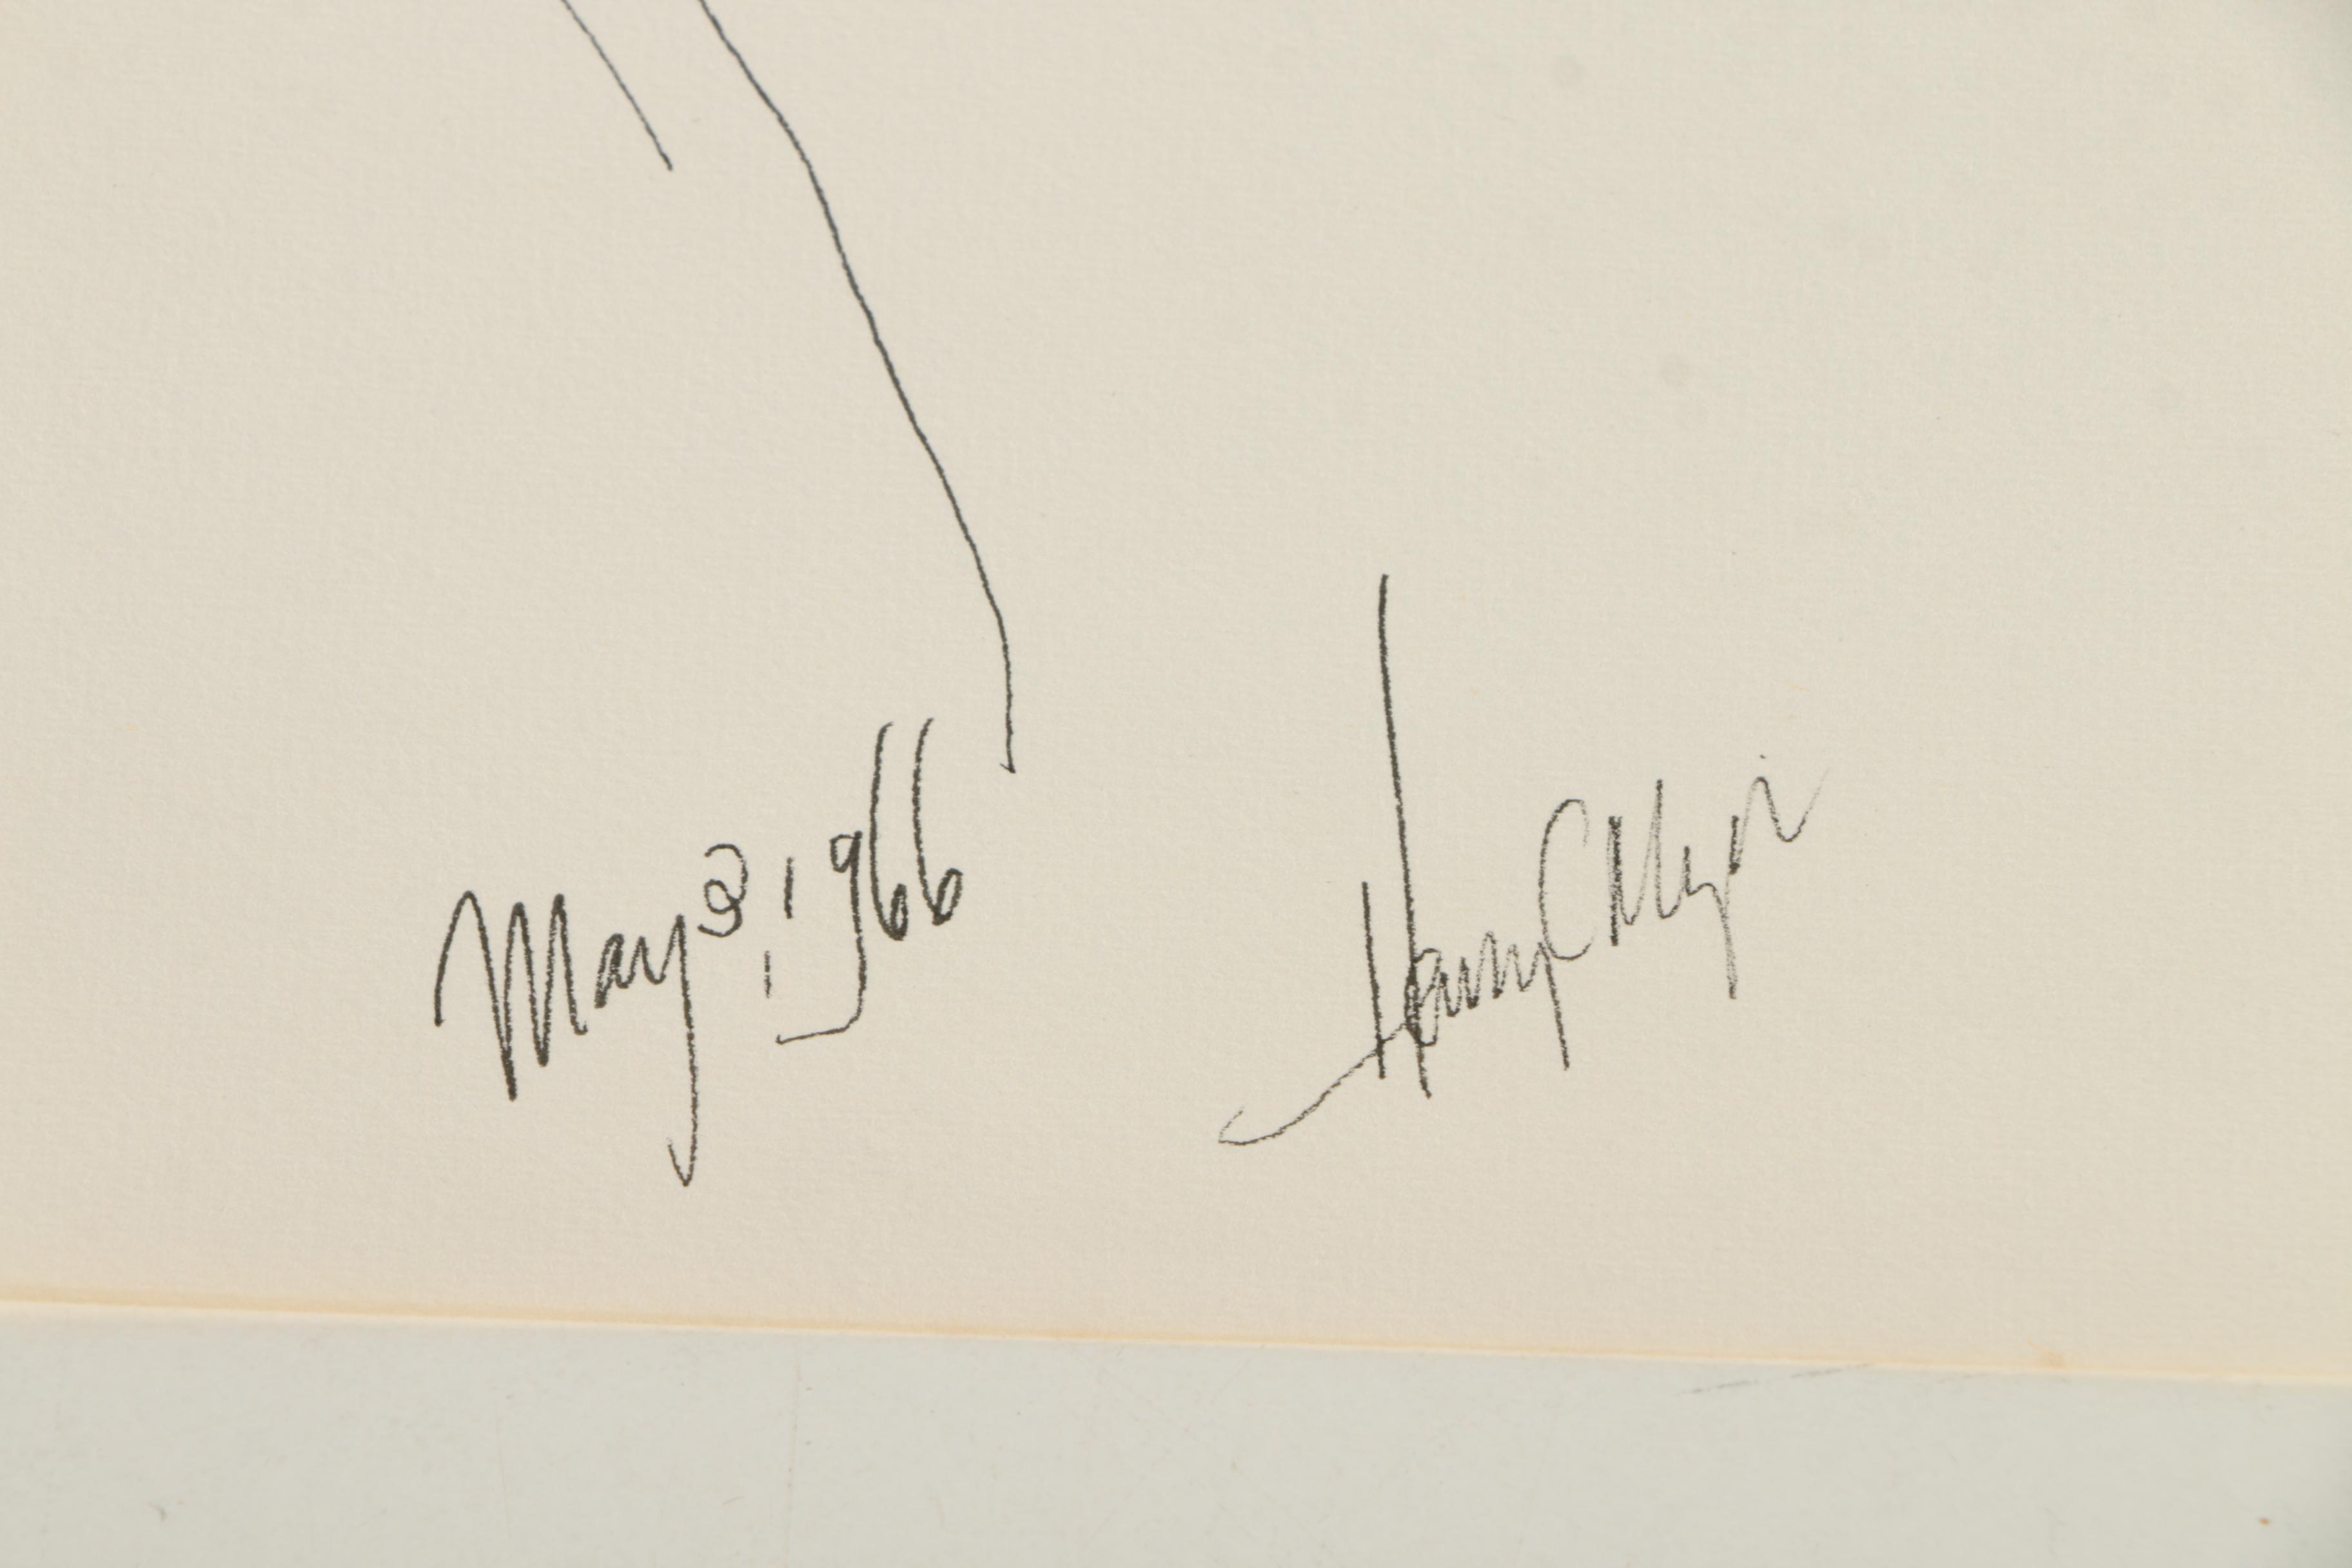 May 3, 1966
Harry